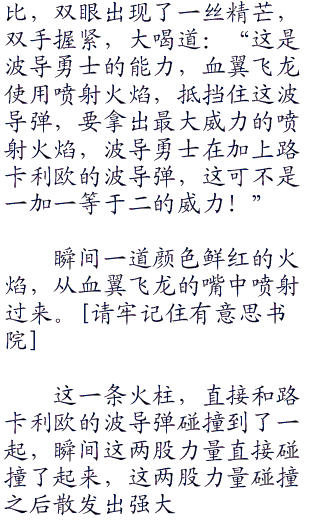 比，双眼出现了一丝精芒，
双手握紧，大喝道：“这是
波导勇士的能力，血翼飞龙
使用喷射火焰，抵挡住这波
导弹，要拿出最大威力的喷
射火焰，波导勇士在加上路
卡利欧的波导弹，这可不是
一加一等于二的威力！”
瞬间一道颜色鲜红的火
焰，从血翼飞龙的嘴中喷射
过来。[请牢记住有意思书
院]
这一条火柱，直接和路
卡利欧的波导弹碰撞到了一
起，瞬间这两股力量直接碰
撞了起来，这两股力量碰撞
之后散发出强大